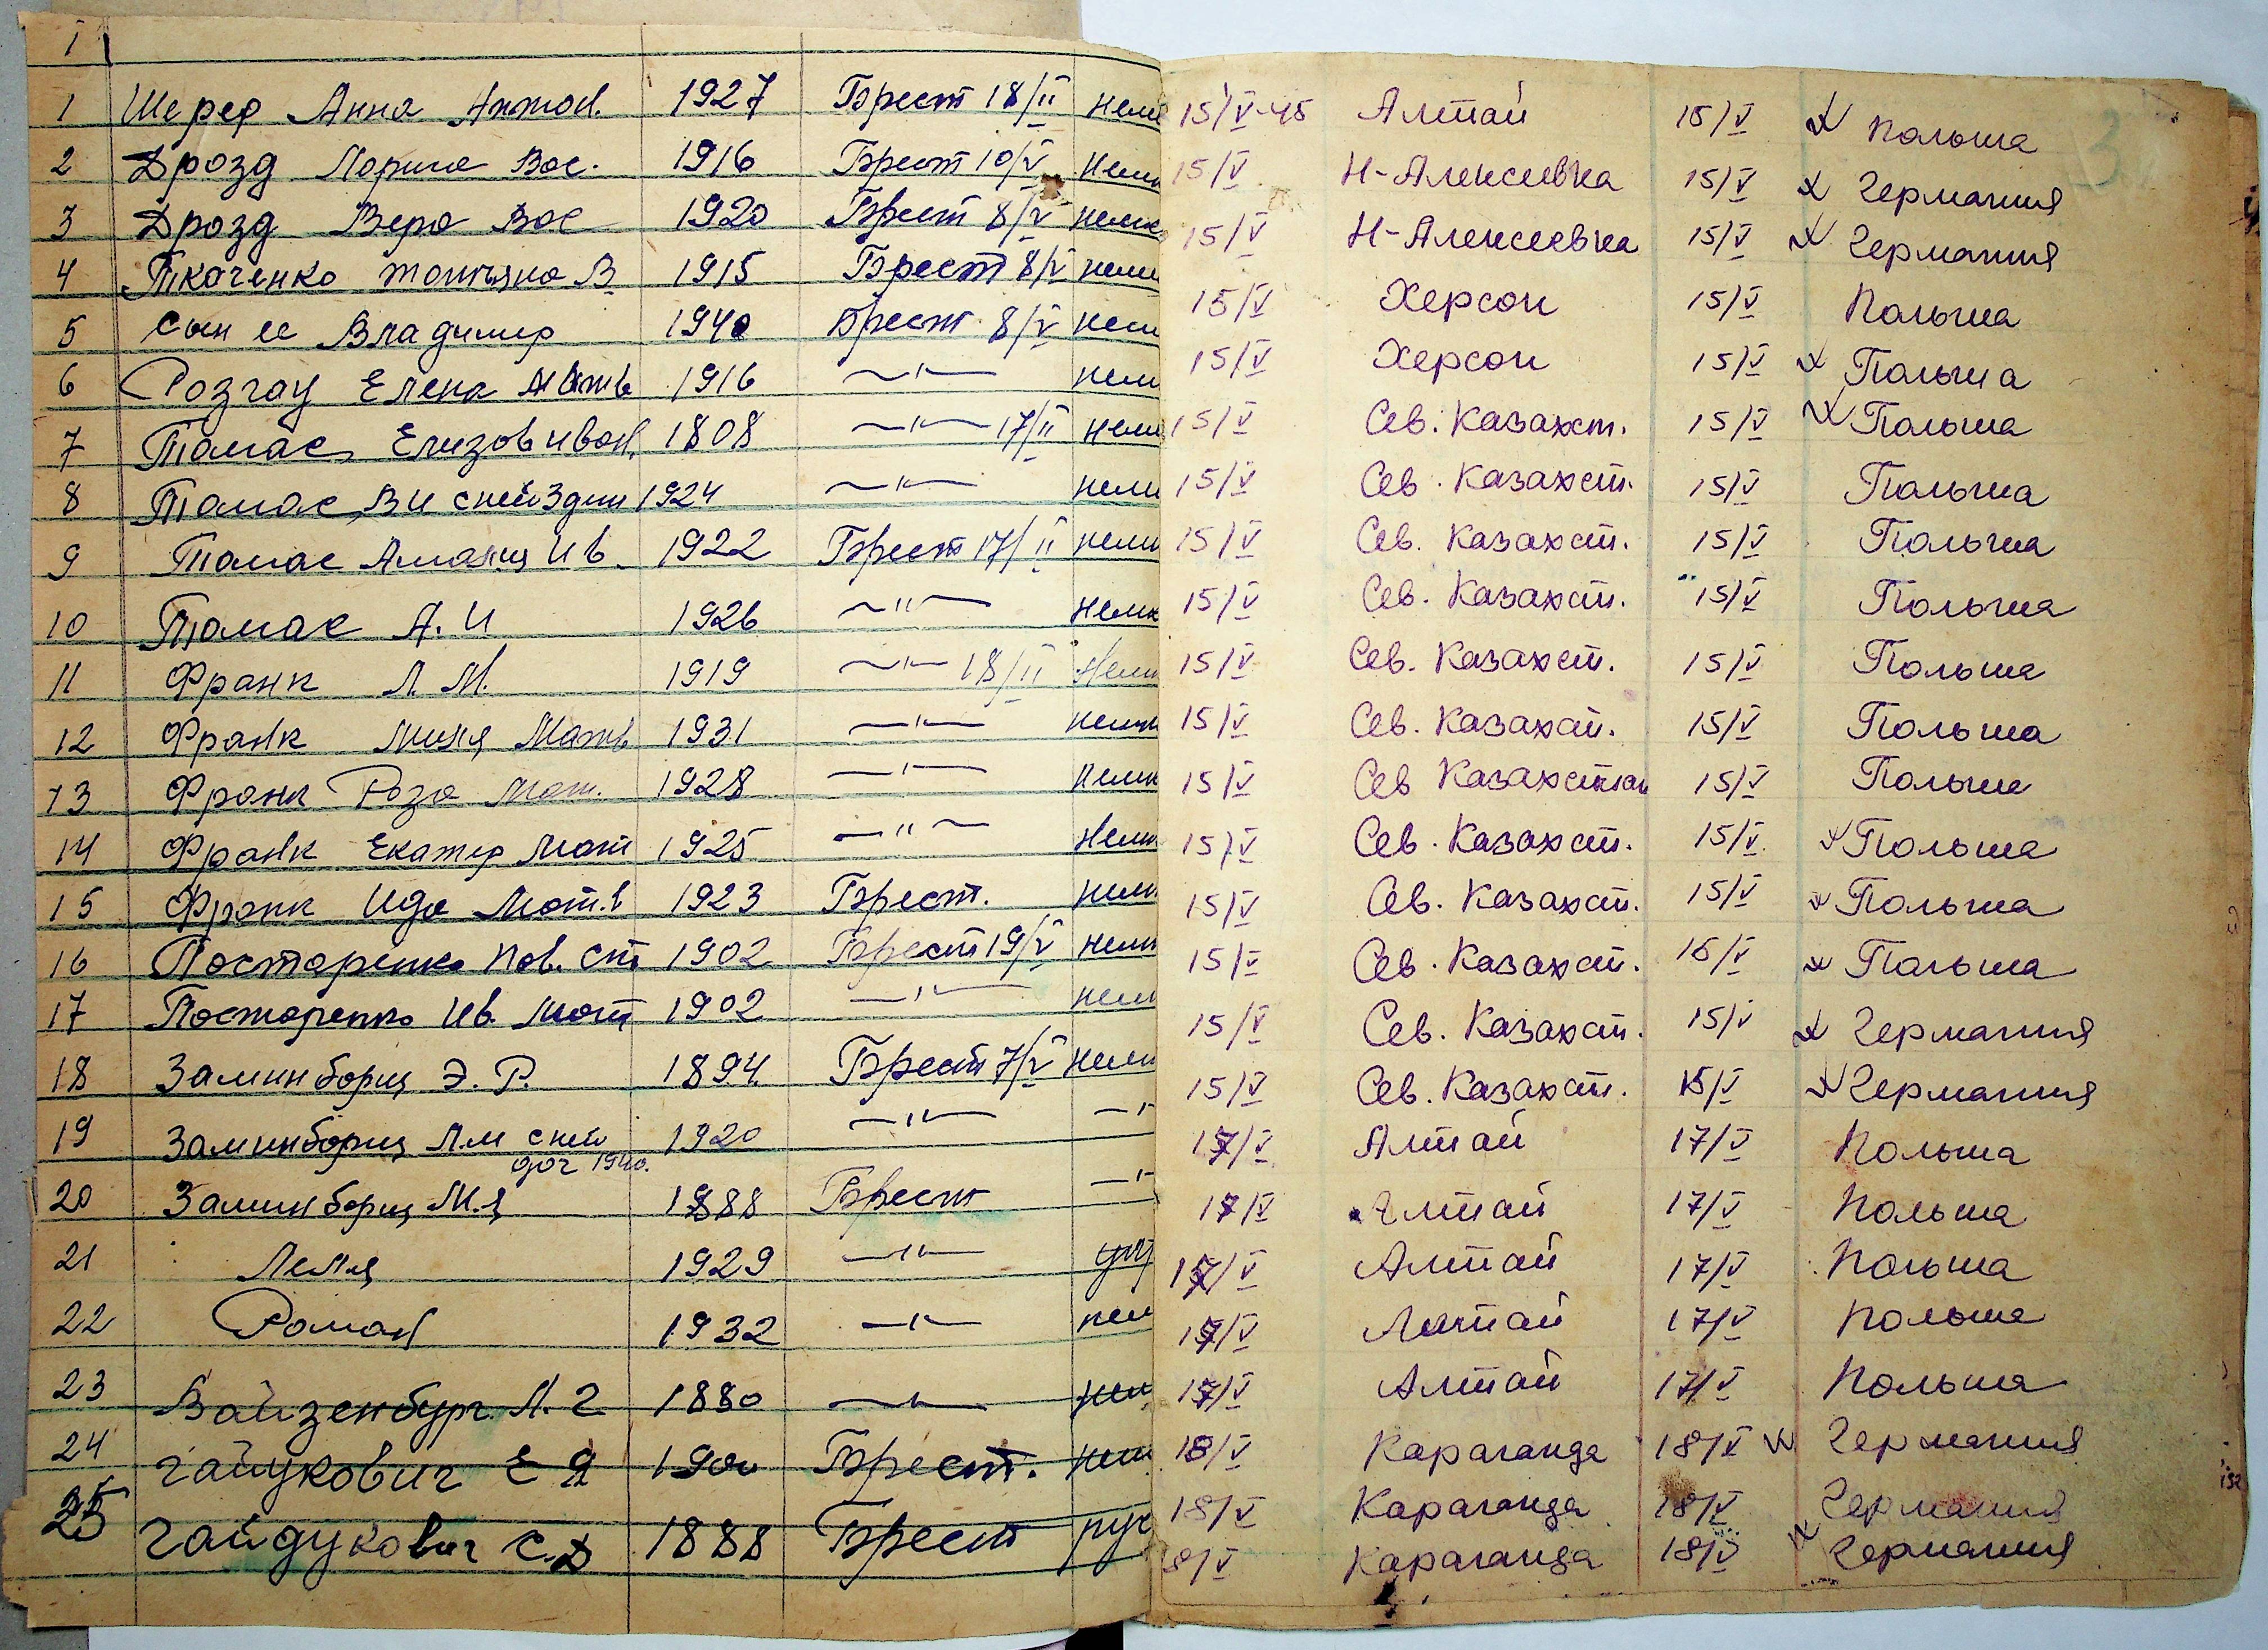 1
1 Шереф Анна Антон. 1927 Брест 18/II немк 15/V-45 Алтай 15/V Польша
2 Дрозд Мария Вас. 1916 Брест 10/V немк 15/V Н-Алексеевка 15/V Германия
3 Дрозд Вера Вас 1920 Брест 8/V немк 15/V Н-Алексеевка 15/V Германия
4 Ткаченко Татьяна В 1915 Брест 8/V немк 15/V Херсон 15/V Польша
5 сын ее Владимир 1940 Брест 8/V нем 15/V Херсон 15/V Польша
6 Елена 1916 —"— нем 15/V Сев. Казахст. 15/V Польша
7 Томас Елизав Иван. 1808 —"— 17/II нем 15/V Сев. Казахст. 15/V Польша
8 Томас В И с ней 3 дет 1924 —"— нем 15/V Сев. Казахст. 15/V Польша
9 Томас Амалия Ив. 1922 Брест 17/II нем 15/V Сев. Казахст. 15/V Польша
10 Томас А. И 1926 —"— немк 15/V Сев. Казахст. 15/V Польша
11 Франк Л. М. 1919 —"— 18/II нем 15/V Сев. Казахст. 15/V Польша
12 Франк Матв 1931 —"— немк 15/V Сев Казахстан 15/V Польша
13 Франк Роза Мат. 1928 —"— немк 15/V Сев. Казахст. 15/V Польша
14 Франк Екатер Мат 1925 —"— нем 15/V Сев. Казахст. 15/V Польша
15 Франк Ида Мат.в 1923 Брест. нем 15/V Сев. Казахст. 15/V Польша
16 Постаренко Пав. Ст 1902 Брест 19/V нем 15/V Сев. Казахст. 15/V Германия
17 Постаренко Ив. Мат 1902 —"— нем 15/V Сев. Казахст. 15/V Германия
18 Заминборщ Э. Р. 1894 Брест 7/V нем 17/V Алтай 17/V Польша
19 Заминборщ Л.М с ней 1920 —"— —"— 17/V Алтай 17/V Польша
доч 1940.
20 Заминборщ М.Я 1888 Брест —"— 17/V Алтай 17/V Польша
21 Леля 1929 —"— 17/V Алтай 17/V Польша
22 Роман 1932 —"— нем 17/V Алтай 17/V Польша
23 Вайзенбург. М. Г 1880 —"— нем 18/V Караганда 18/V Германия
24 Гайдукович Е Я 1900 Брест. нем 18/V Караганда 18/V Германия
25 Гайдукович С.Д 1888 Брест рус 18/V Караганда 18/V Германия
3